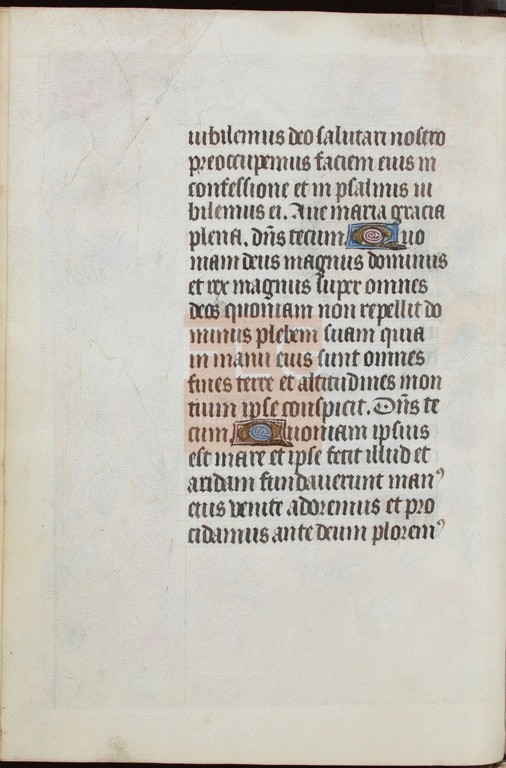 iubilemus deo salutari nostro
preoccupemus faciem eius in
confessione et in psalmis iu
bilemus ei. Aue maria gracia
plena. dñs tecum Quo
niam deus magnus dominus
et rex magnus super omnes
deos quoniam non repellit do
minus plebem suam quia
in manu eius sunt omnes
fines terre et altitudines mon
tium ipse conspicit. Dñs te
cum Quoniam ipsius
est mare et ipse fecit illud et
aridam fundauerunt manꝰ
eius venite adoremus et pro
cidamus ante deum ploremꝰ